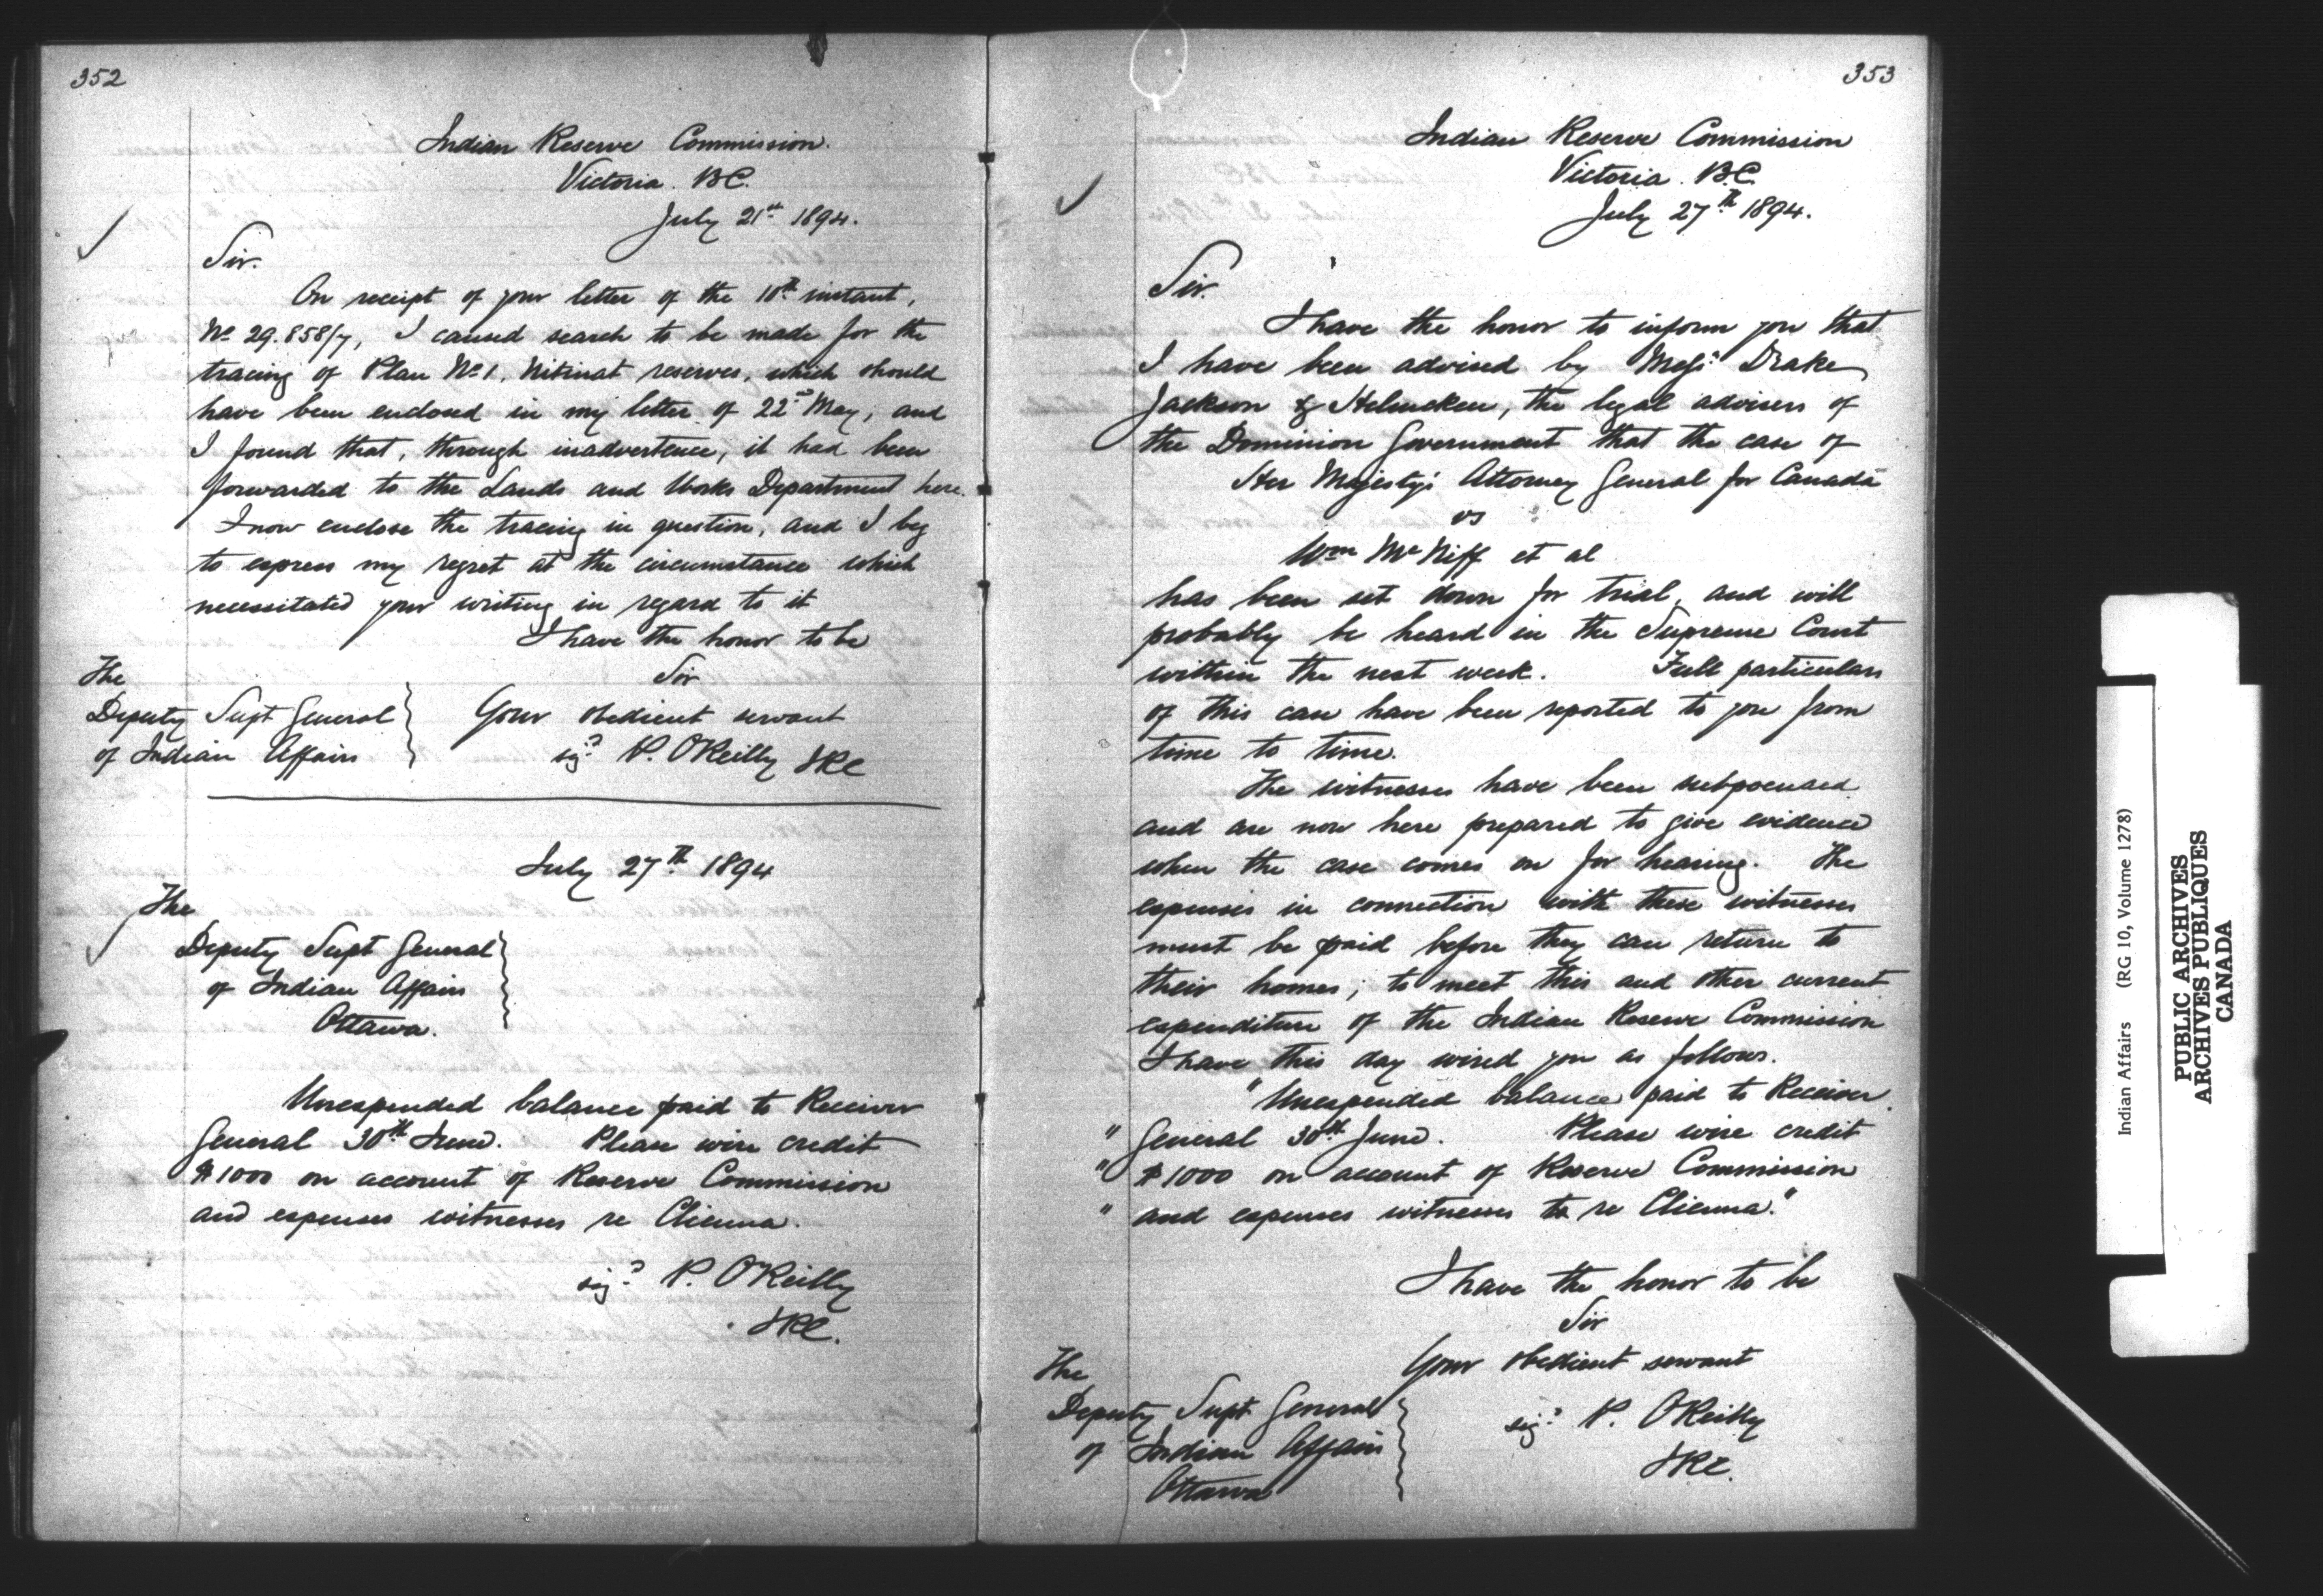 352
Indian Reserve Commission.
Victoria. B.C.
July 21st 1894.
Sir.
On receipt of your letter of the 10th instant,
No 29.858/7, I caused search to be made for the
tracing of Plan No 1, Nitinat reserves, which should
have been enclosed in my letter of 22nd May, and
I found that, through inadvertence, it had been
forwarded to the Lands and Works Department here.
I now enclose the tracing in question, and I beg
to express my regret at the circumstance which
necessitated your writing in regard to it
I have the honor to be
Sir
Your obedient servant
sigd P. OReilly IRC
The
Deputy Supt General
of Indian Affairs
July 27th 1894
The
Deputy Supt General
of Indian Affairs
Ottawa.
Unexpended balance paid to Receiver
General 30th June. Please wire credit
$1000 on account of Reserve Commission
and expenses witnesses re Clienna.
sigd P. OReilly
IRC.
353
Indian Reserve Commission
Victoria. B.C.
July 27th 1894.
Sir.
I have the honor to inform you that
I have been advised by Messrs Drake
Jackson & Helmcken, the legal advisers of
the Dominion Government that the case of
Her Majesty's Attorney General for Canada
vs
Wm McNiff et al
has been set down for trial, and will
probably be heard in the Supreme Court
within the next week. Full particulars
of this case have been reported to you from
time to time.
The witnesses have been subpoenaed
and are now here prepared to give evidence
when the case comes on for hearing. The
expenses in connection with these witnesses
must be paid before they can return to
their homes; to meet this and other current
expenditure of the Indian Reserve Commission
I have this day wired you as follows.
"Unexpended balance paid to Receiver
" General 30th June. Please wire credit
" $1000 on account of Reserve Commission
" and expenses witnesses re Clienna."
I have the honor to be
Sir
Your obedient servant
sigd P. OReilly
IRC.
The
Deputy Supt General
of Indian Affairs
Ottawa
Indian Affairs (RG 10, Volume 1278)
PUBLIC ARCHIVES
ARCHIVES PUBLIQUES
CANADA